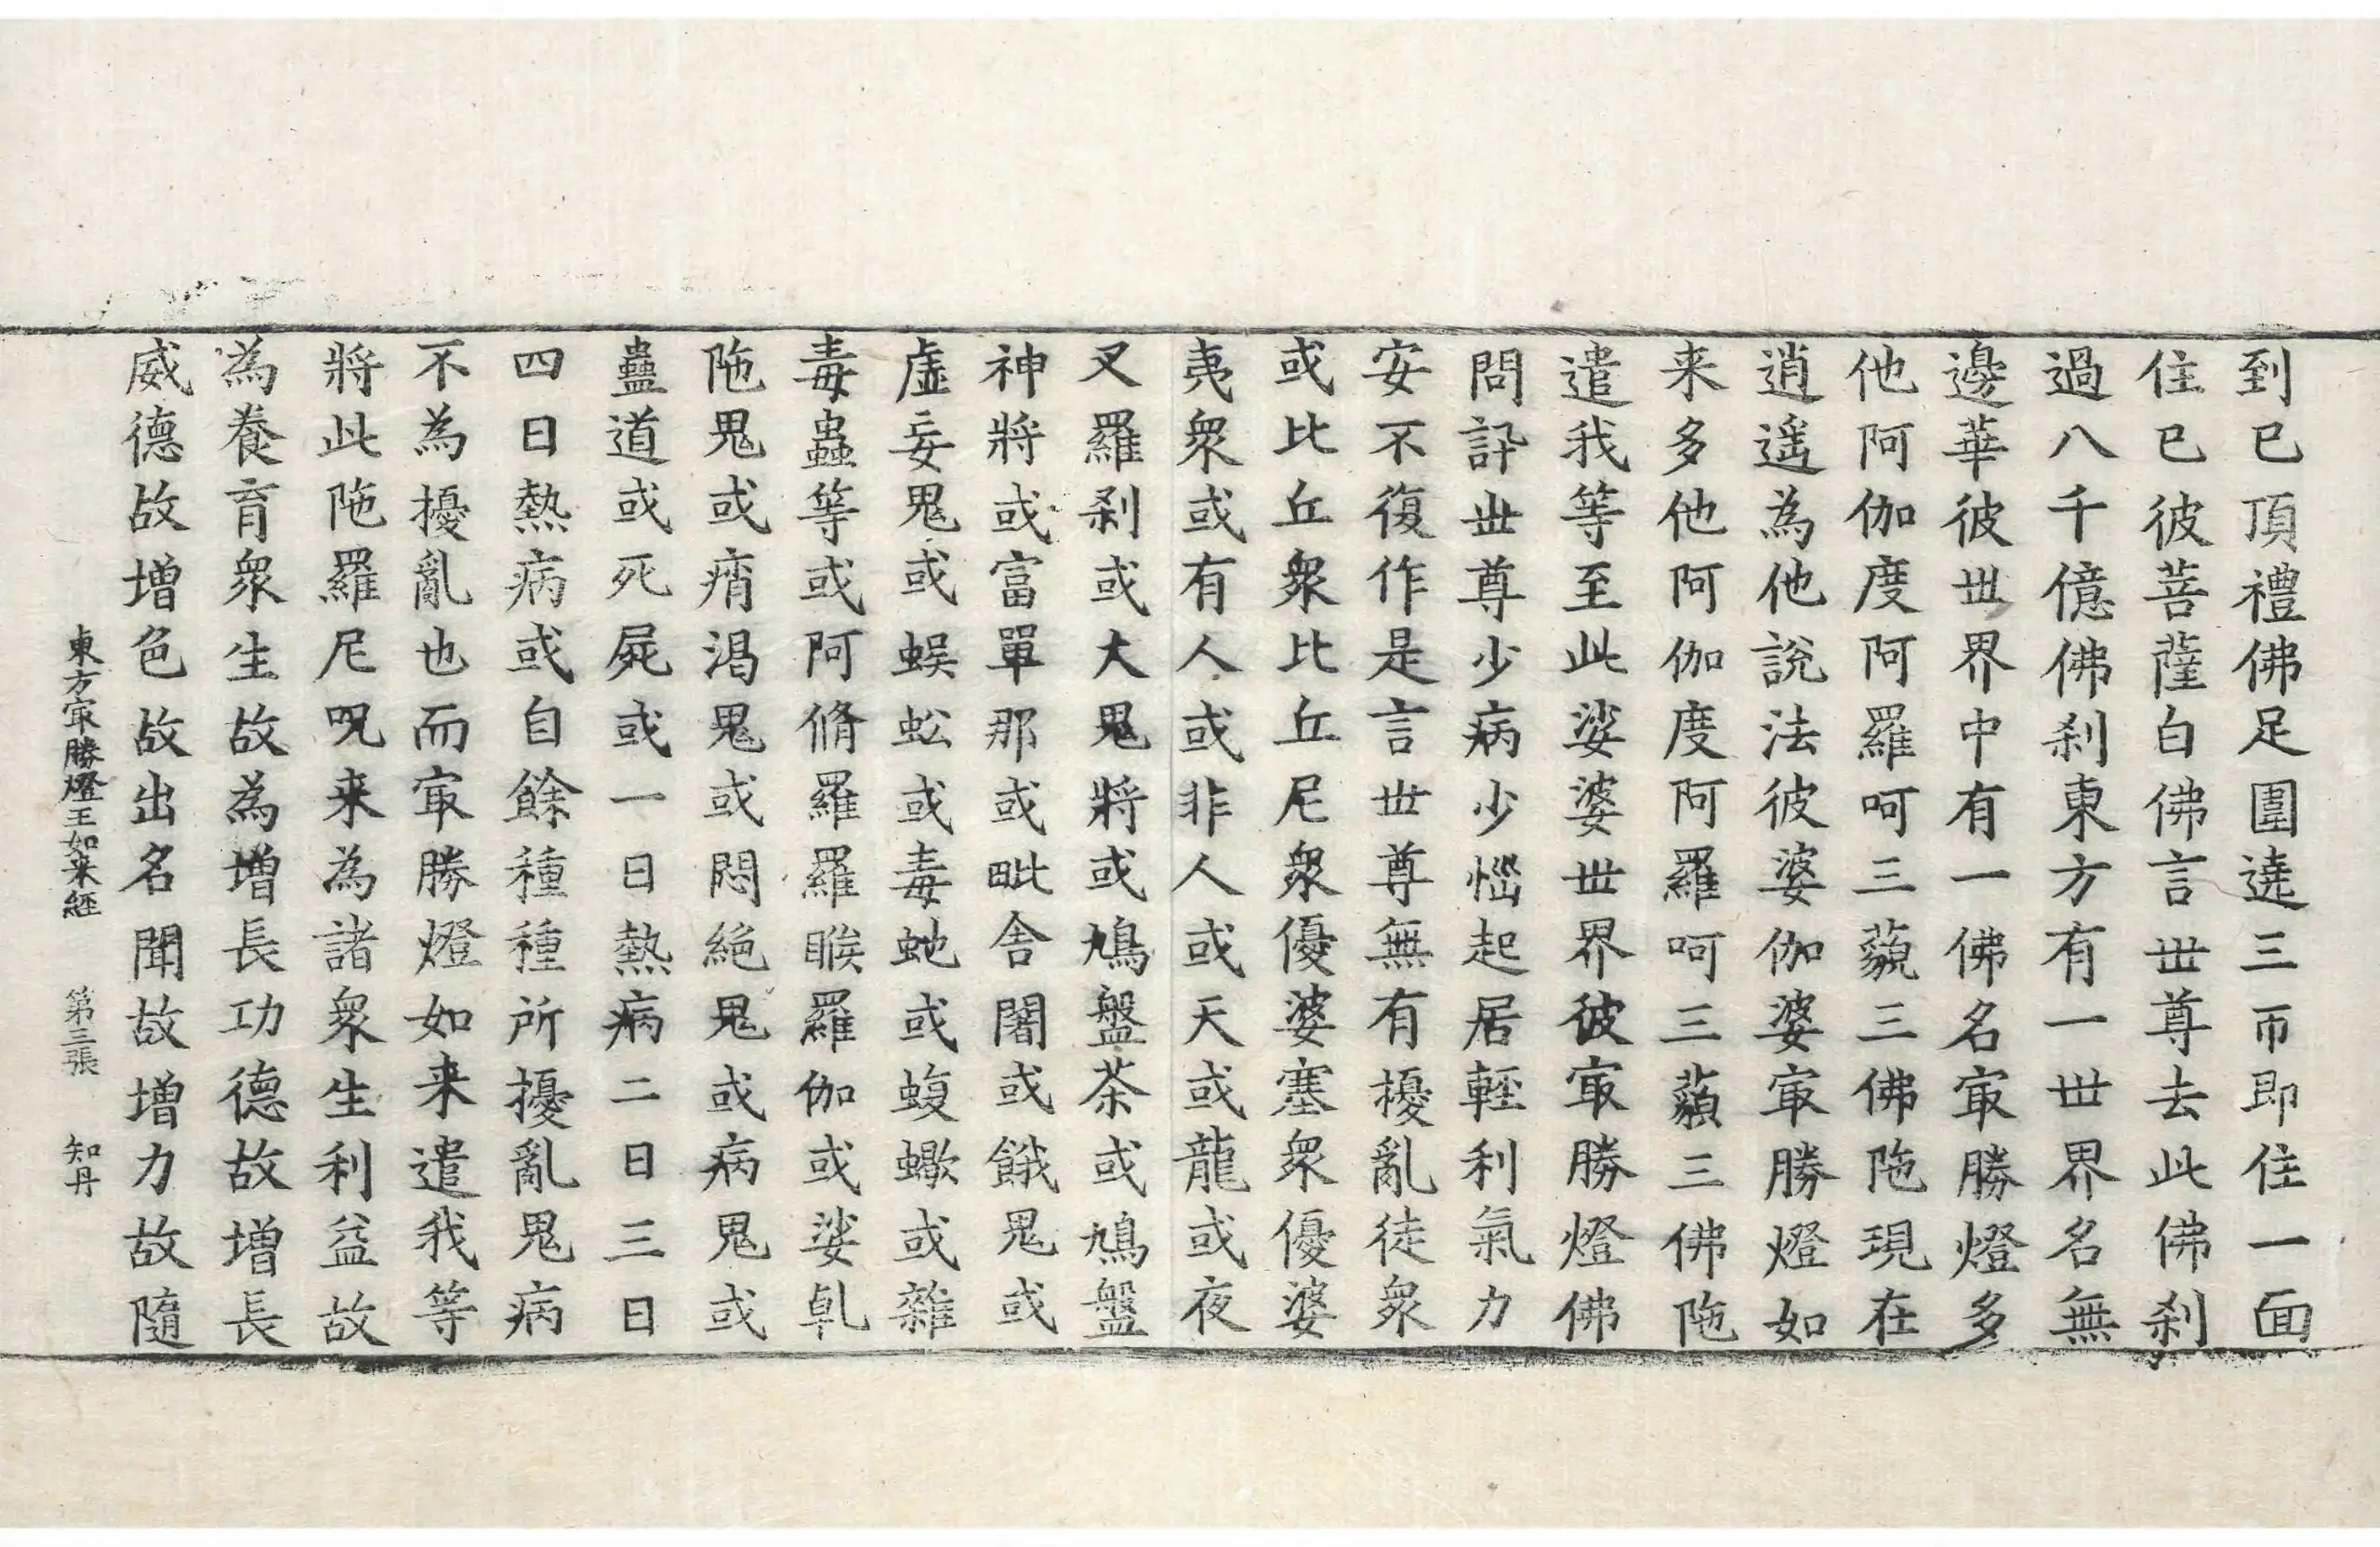 到已頂禮佛足圍遶三帀即住一面
住已彼菩薩白佛言世尊去此佛刹
過八千億佛刹東方有一世界名無
邊華彼世界中有一佛名㝡勝燈多
他阿伽度阿羅呵三藐三佛陁現在
逍遥為他說法彼婆伽婆㝡勝燈如
来多他阿伽度阿羅呵三藐三佛陁
遣我等至此娑婆世界彼㝡勝燈佛
問訊世尊少病少惱起居輕利氣力
安不復作是言世尊無有擾亂徒衆
或比丘衆比丘尼衆優婆塞衆優婆
夷衆或有人或非人或天或龍或夜
叉羅刹或大鬼將或鳩盤茶或鳩盤
神將或富單那或毗舍闍或餓鬼或
虛妄鬼或蜈蚣或毒虵或蝮蠍或雜
毒蟲等或阿脩羅羅睺羅伽或娑乹
陁鬼或痟渴鬼或悶絶鬼或病鬼或
蠱道或死屍或一日熱病二日三日
四日熱病或自餘種種所擾亂鬼病
不為擾亂也而㝡勝燈如来遣我等
將此陁羅尼呪来為諸衆生利益故
為養育衆生故為增長功德故增長
威德故增色故出名聞故增力故隨
東方㝡勝燈王如来經 第三張 知丹